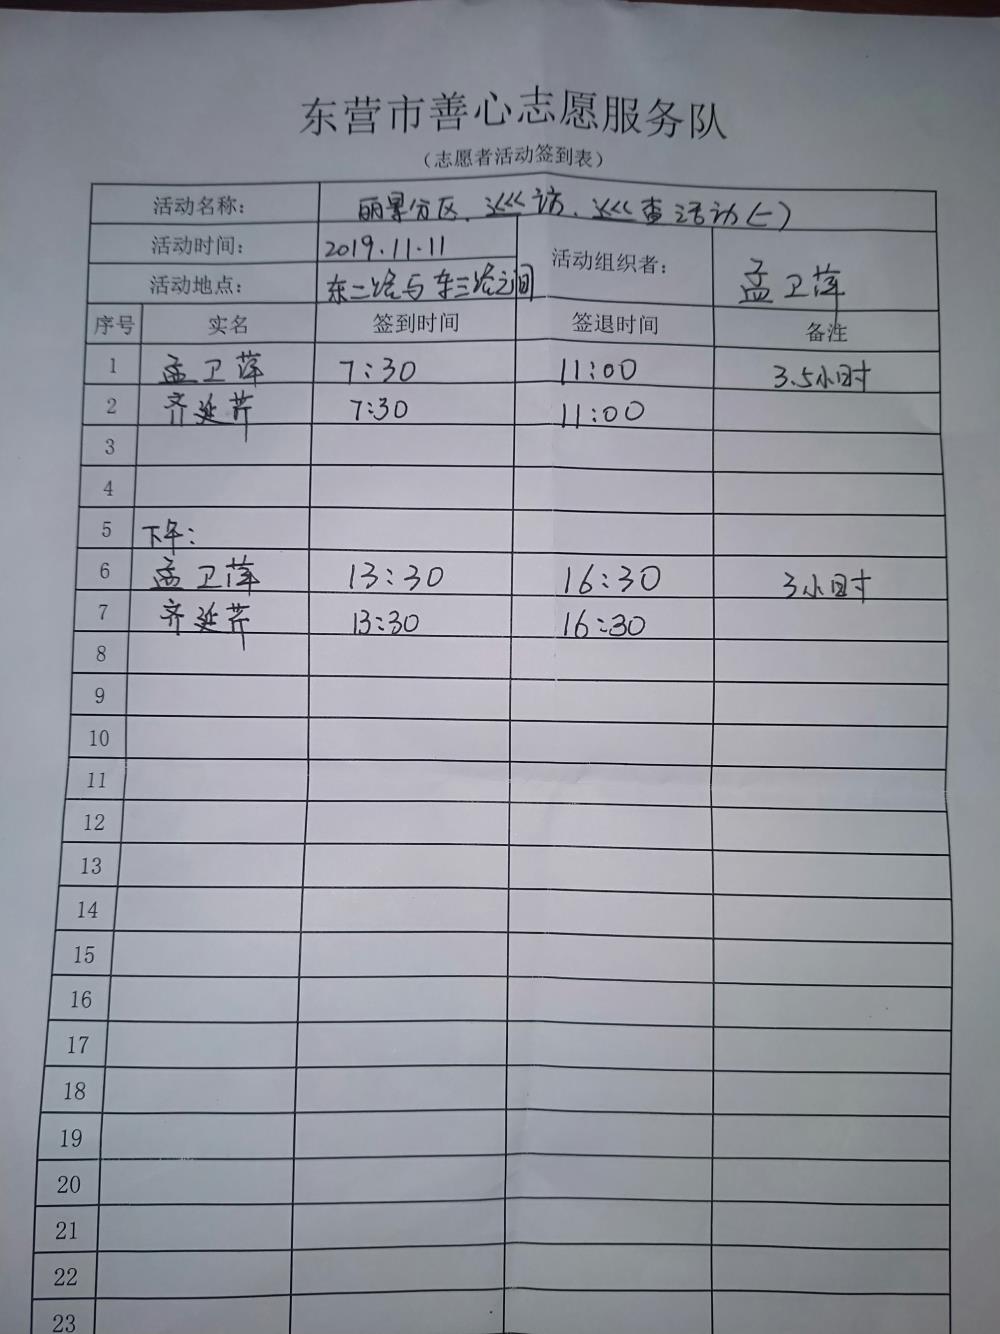 东营市善心志愿服务队
（志愿者活动签到表）
活动名称： 丽景分区、巡访、巡查活动(一)
活动时间： 2019.11.11 活动组织者： 孟卫萍
活动地点： 东二路与东三路之间
序号 实名 签到时间 签退时间 备注
1 孟卫萍 7:30 11:00 3.5小时
2 齐延芹 7:30 11:00
3
4
5 下午：
6 孟卫萍 13:30 16:30 3小时
7 齐延芹 13:30 16:30
8
9
10
11
12
13
14
15
16
17
18
19
20
21
22
23